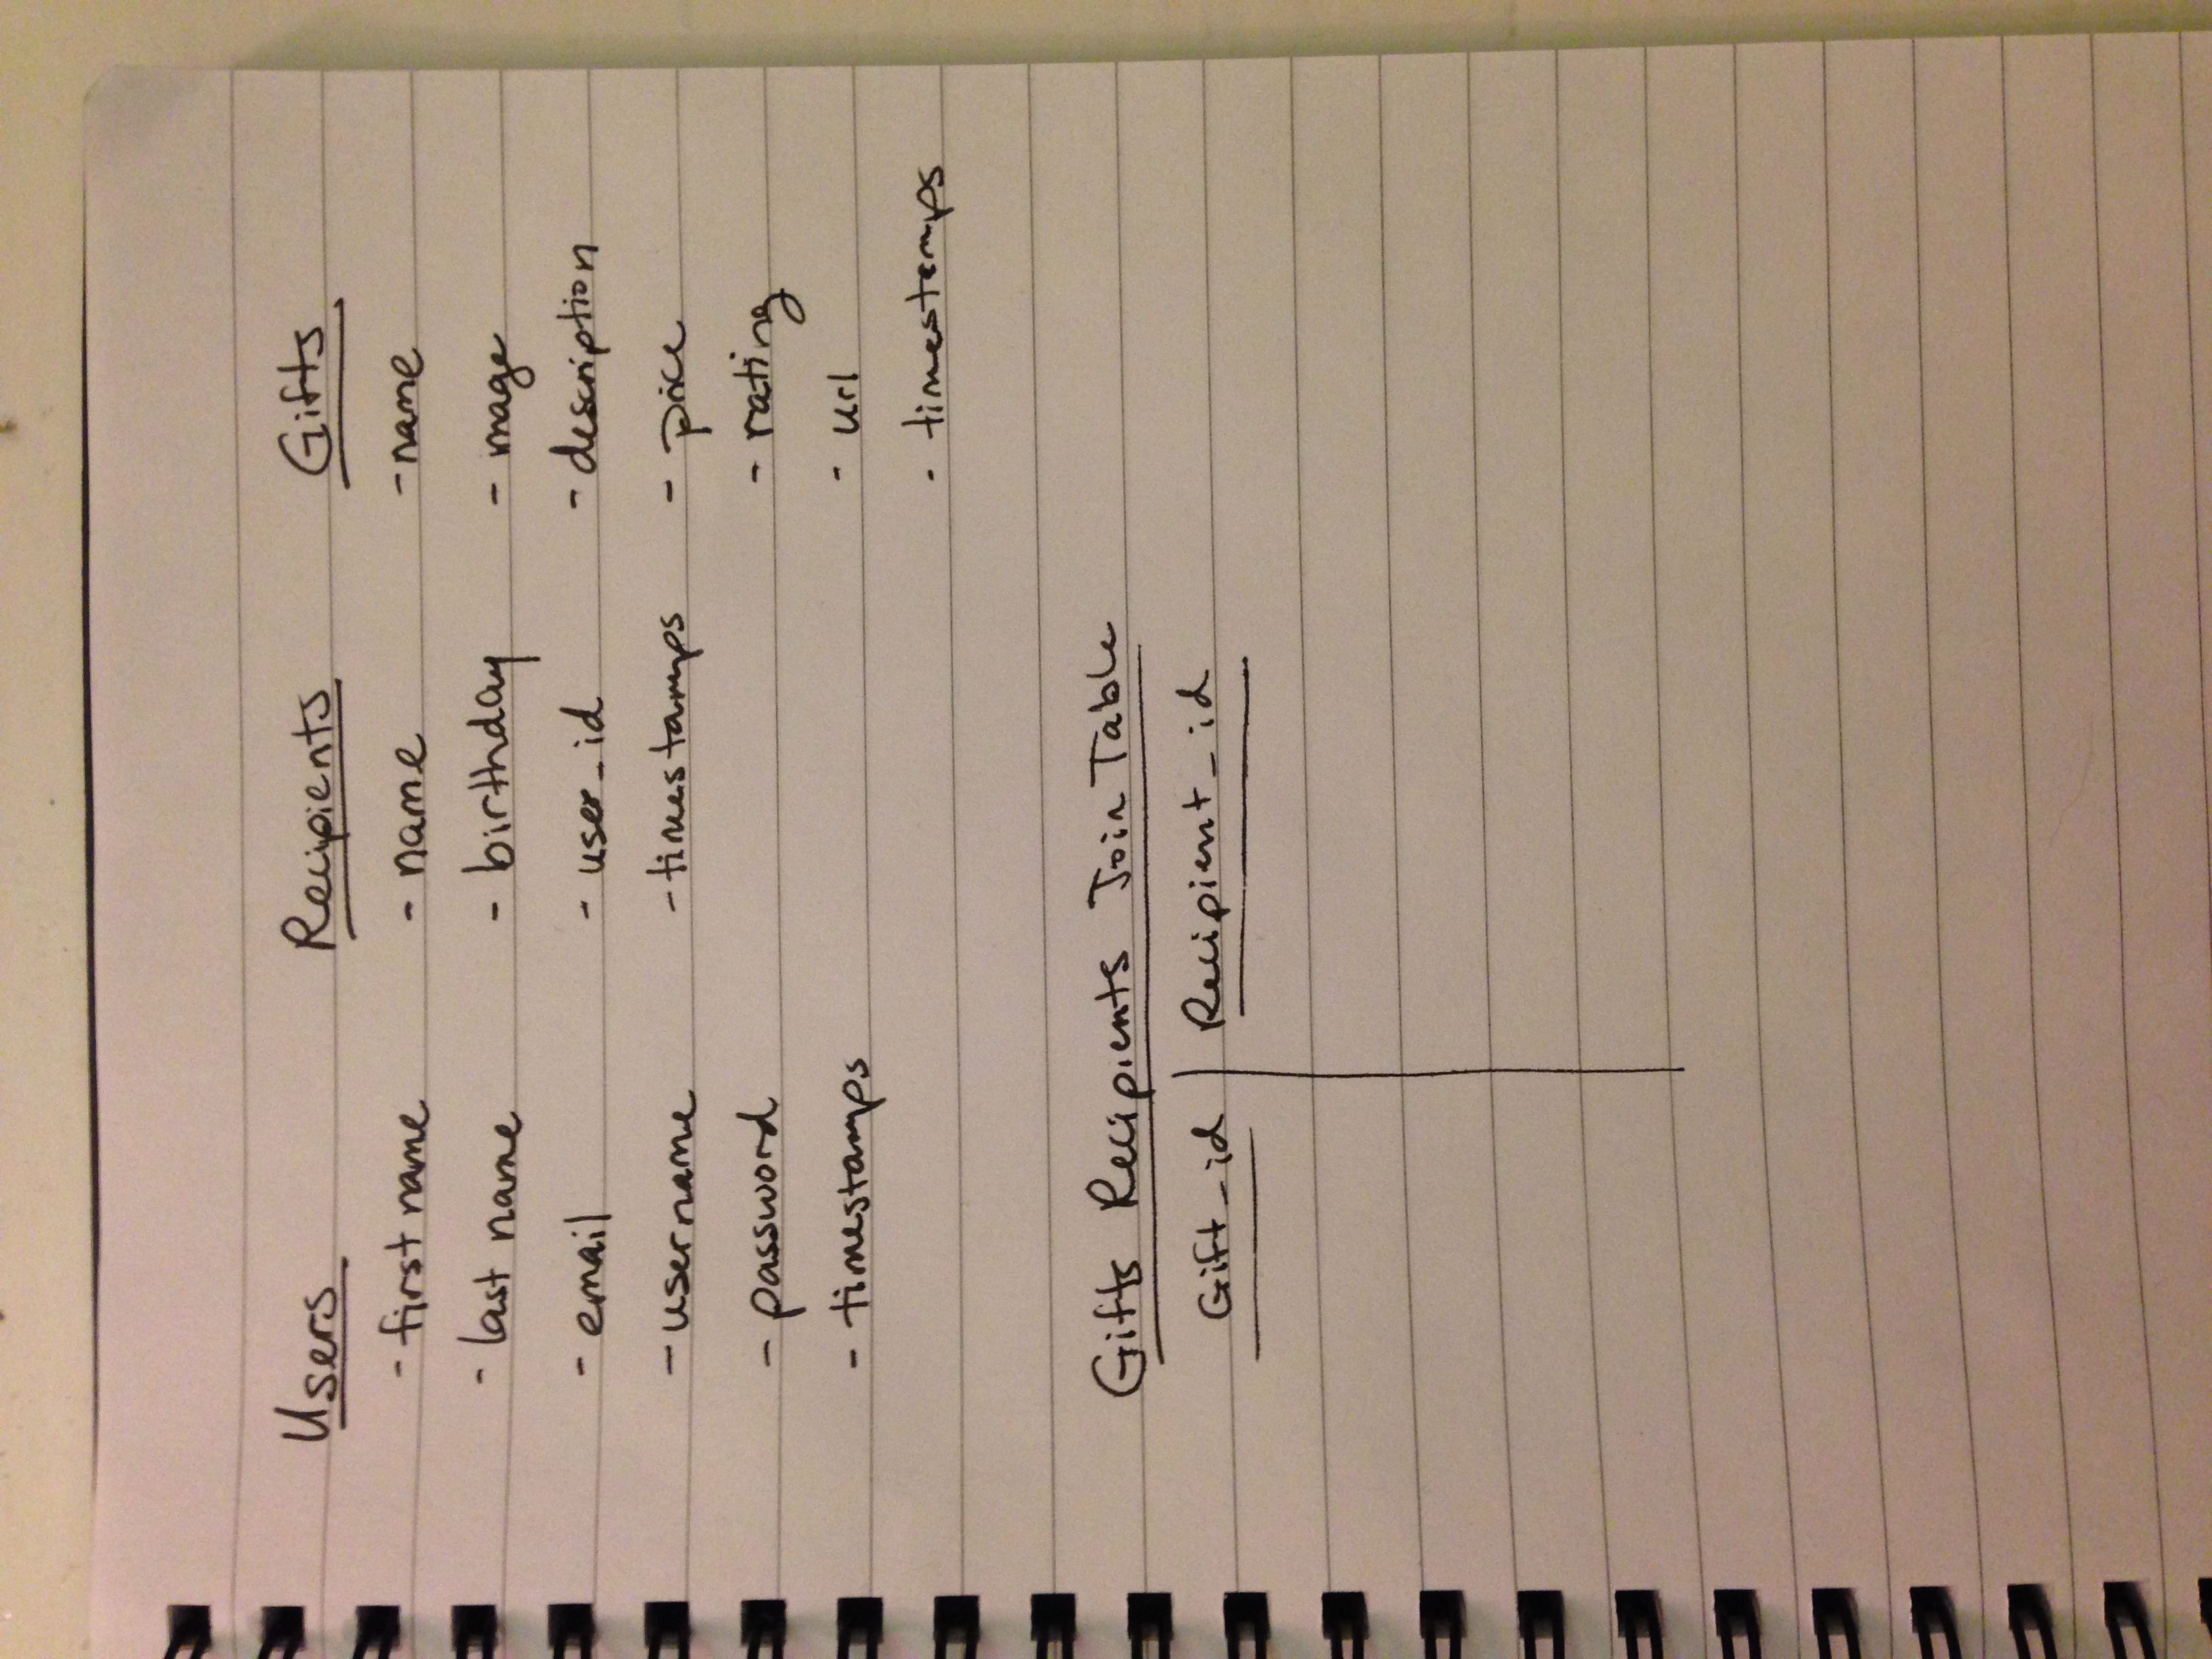 Users
- first name
- last name
- email
- username
- password
- timestamps
Recipients
- name
- birthday
- user_id
- timestamps
Gifts
- name
- image
- description
- price
- rating
- url
- timestamps
Gifts Recipients Join Table
Gift_id | Recipient_id